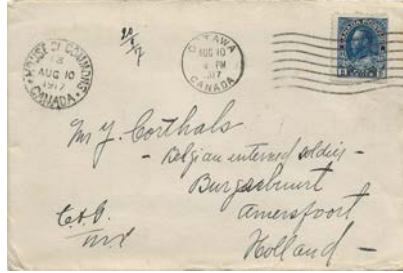 HOUSE OF COMMONS
13
AUG 10
1917
CANADA
OTTAWA
AUG 10
PM
1917
CANADA
CANADA POSTAGE
Mr J. Corthals
- Belgian interned soldier -
Burgesbuurt
Amersfoort
Holland -